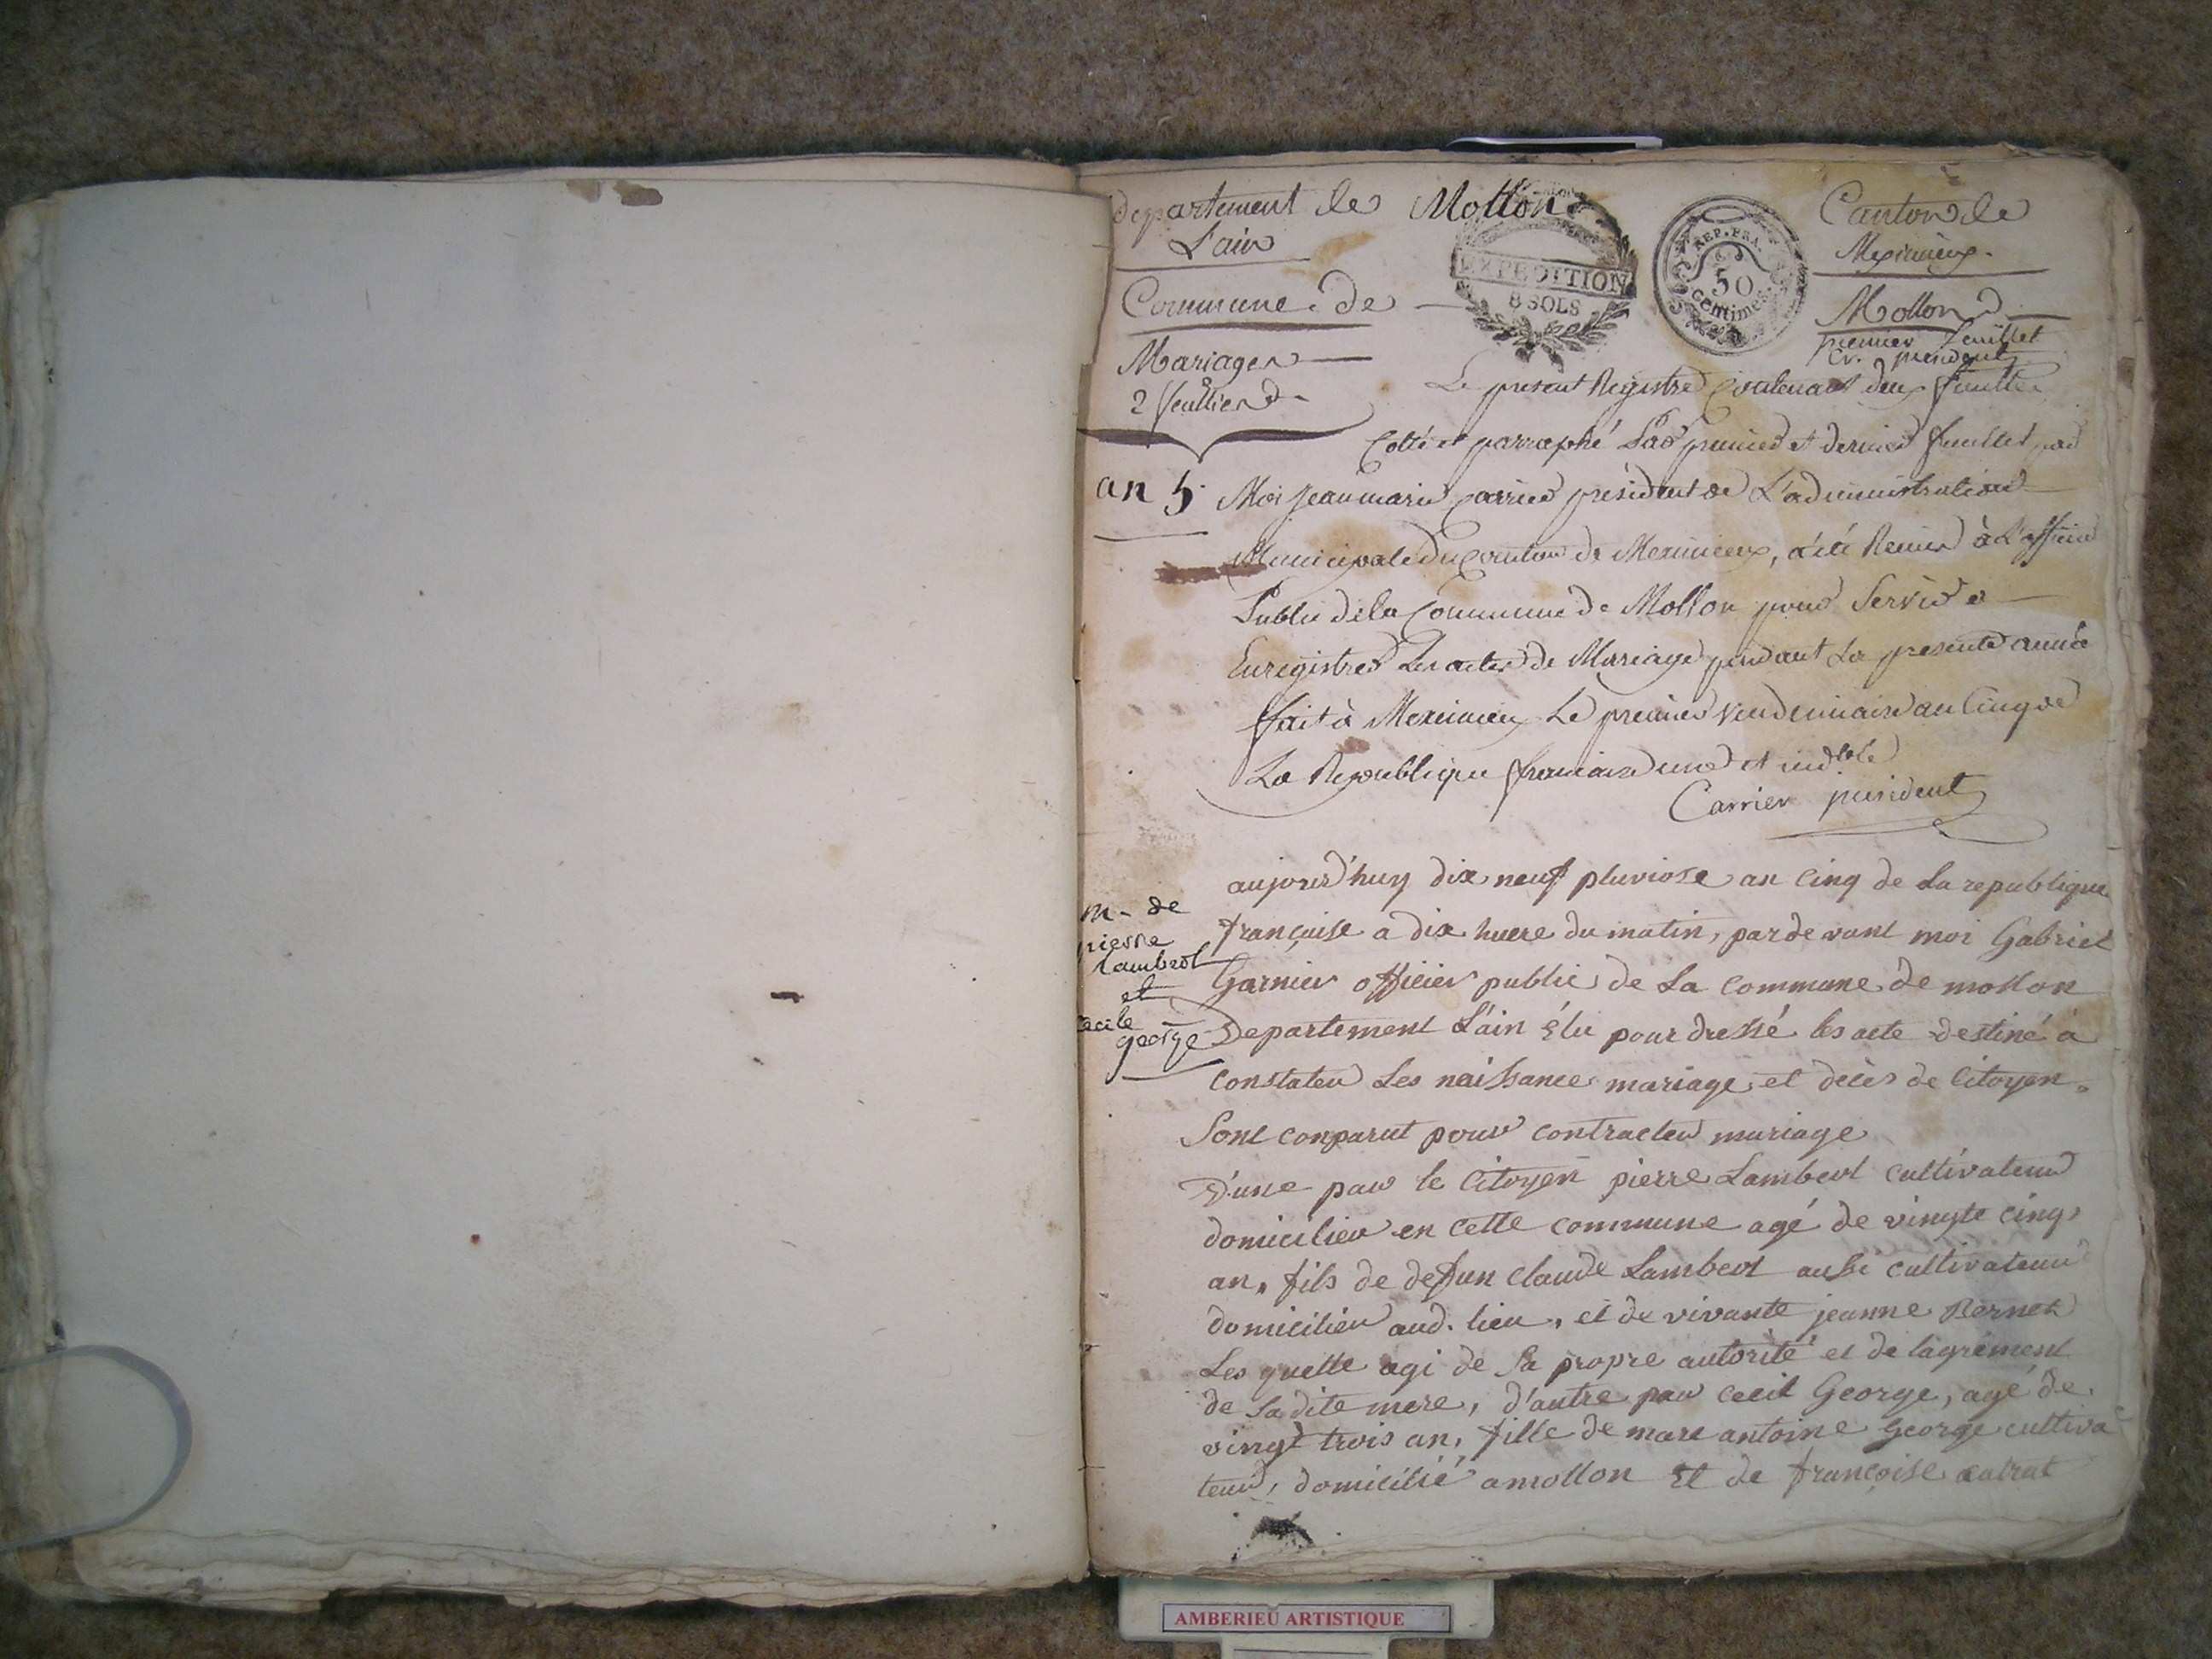 Departement de
L'ain
Mollon
Canton de
Meximieux.
EXPEDITION
8 SOLS
REP. FRA.
50
centimes
Commune de
Mollon
premier feuillet
Cr. president
Mariages
2 feuilles
Le present Registre Contenant deux feuilles
Cotté et parraphé par premier et dernier feuillet par
an 5.
Moi jean marie Carrier président de L'administration
Municipale du Canton de Meximieux, a été Remis à L'officier
Public de la Commune de Mollon pour Servir a
Enregistrer Les actes de Mariage pendant La presente année
fait à Meximieux Le premier Vendemiaire an Cinq de
La Republique francaise une et indble
Carrier president
m. de
pierre
Lambert
et
cecile
george
aujourd'huy dix neuf pluviose an Cinq de La republique
française a dix huere du matin, par devant moi Gabriel
Garnier officier public de La Commune de mollon
Departement L'ain élu pour dressé les acte destiné à
constater Les naissance mariage et décès de Citoyen.
Sont comparut pour contracter mariage
D'une par le Citoyen pierre Lambert cultivateur
domicilier en cette commune agé de vingte cinq
an, fils de defun Claude Lambert aussi cultivateur
domicilier aud. lieu, et de vivante jeanne Bernet
Les quelle agi de sa propre autorité et de lagrément
de sa dite mere, d'autre par Cecil George, agé de
vingt trois an, fille de marc antoine George cultiva
teur, domicilié a mollon Et de françoise
AMBERIEU ARTISTIQUE